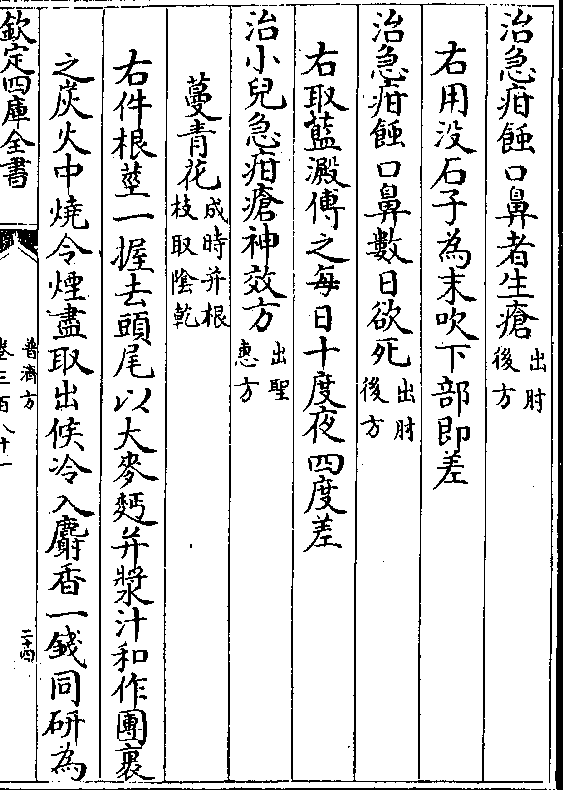 治急疳蝕口鼻者生瘡出肘後方
右用没石子為末吹下部即差
治急疳蝕口鼻數日欲死出肘後方
右取藍澱傅之每日十度夜四度差
治小兒急疳瘡神效方出聖惠方
蔓青花成時并根枝取陰乾
右件根莖一握去頭尾以大麥麪并漿汁和作團裹
之炭火中燒令煙盡取出候冷入麝香一錢同研為
欽定四庫全書
普濟方
卷三百八十一
二十四